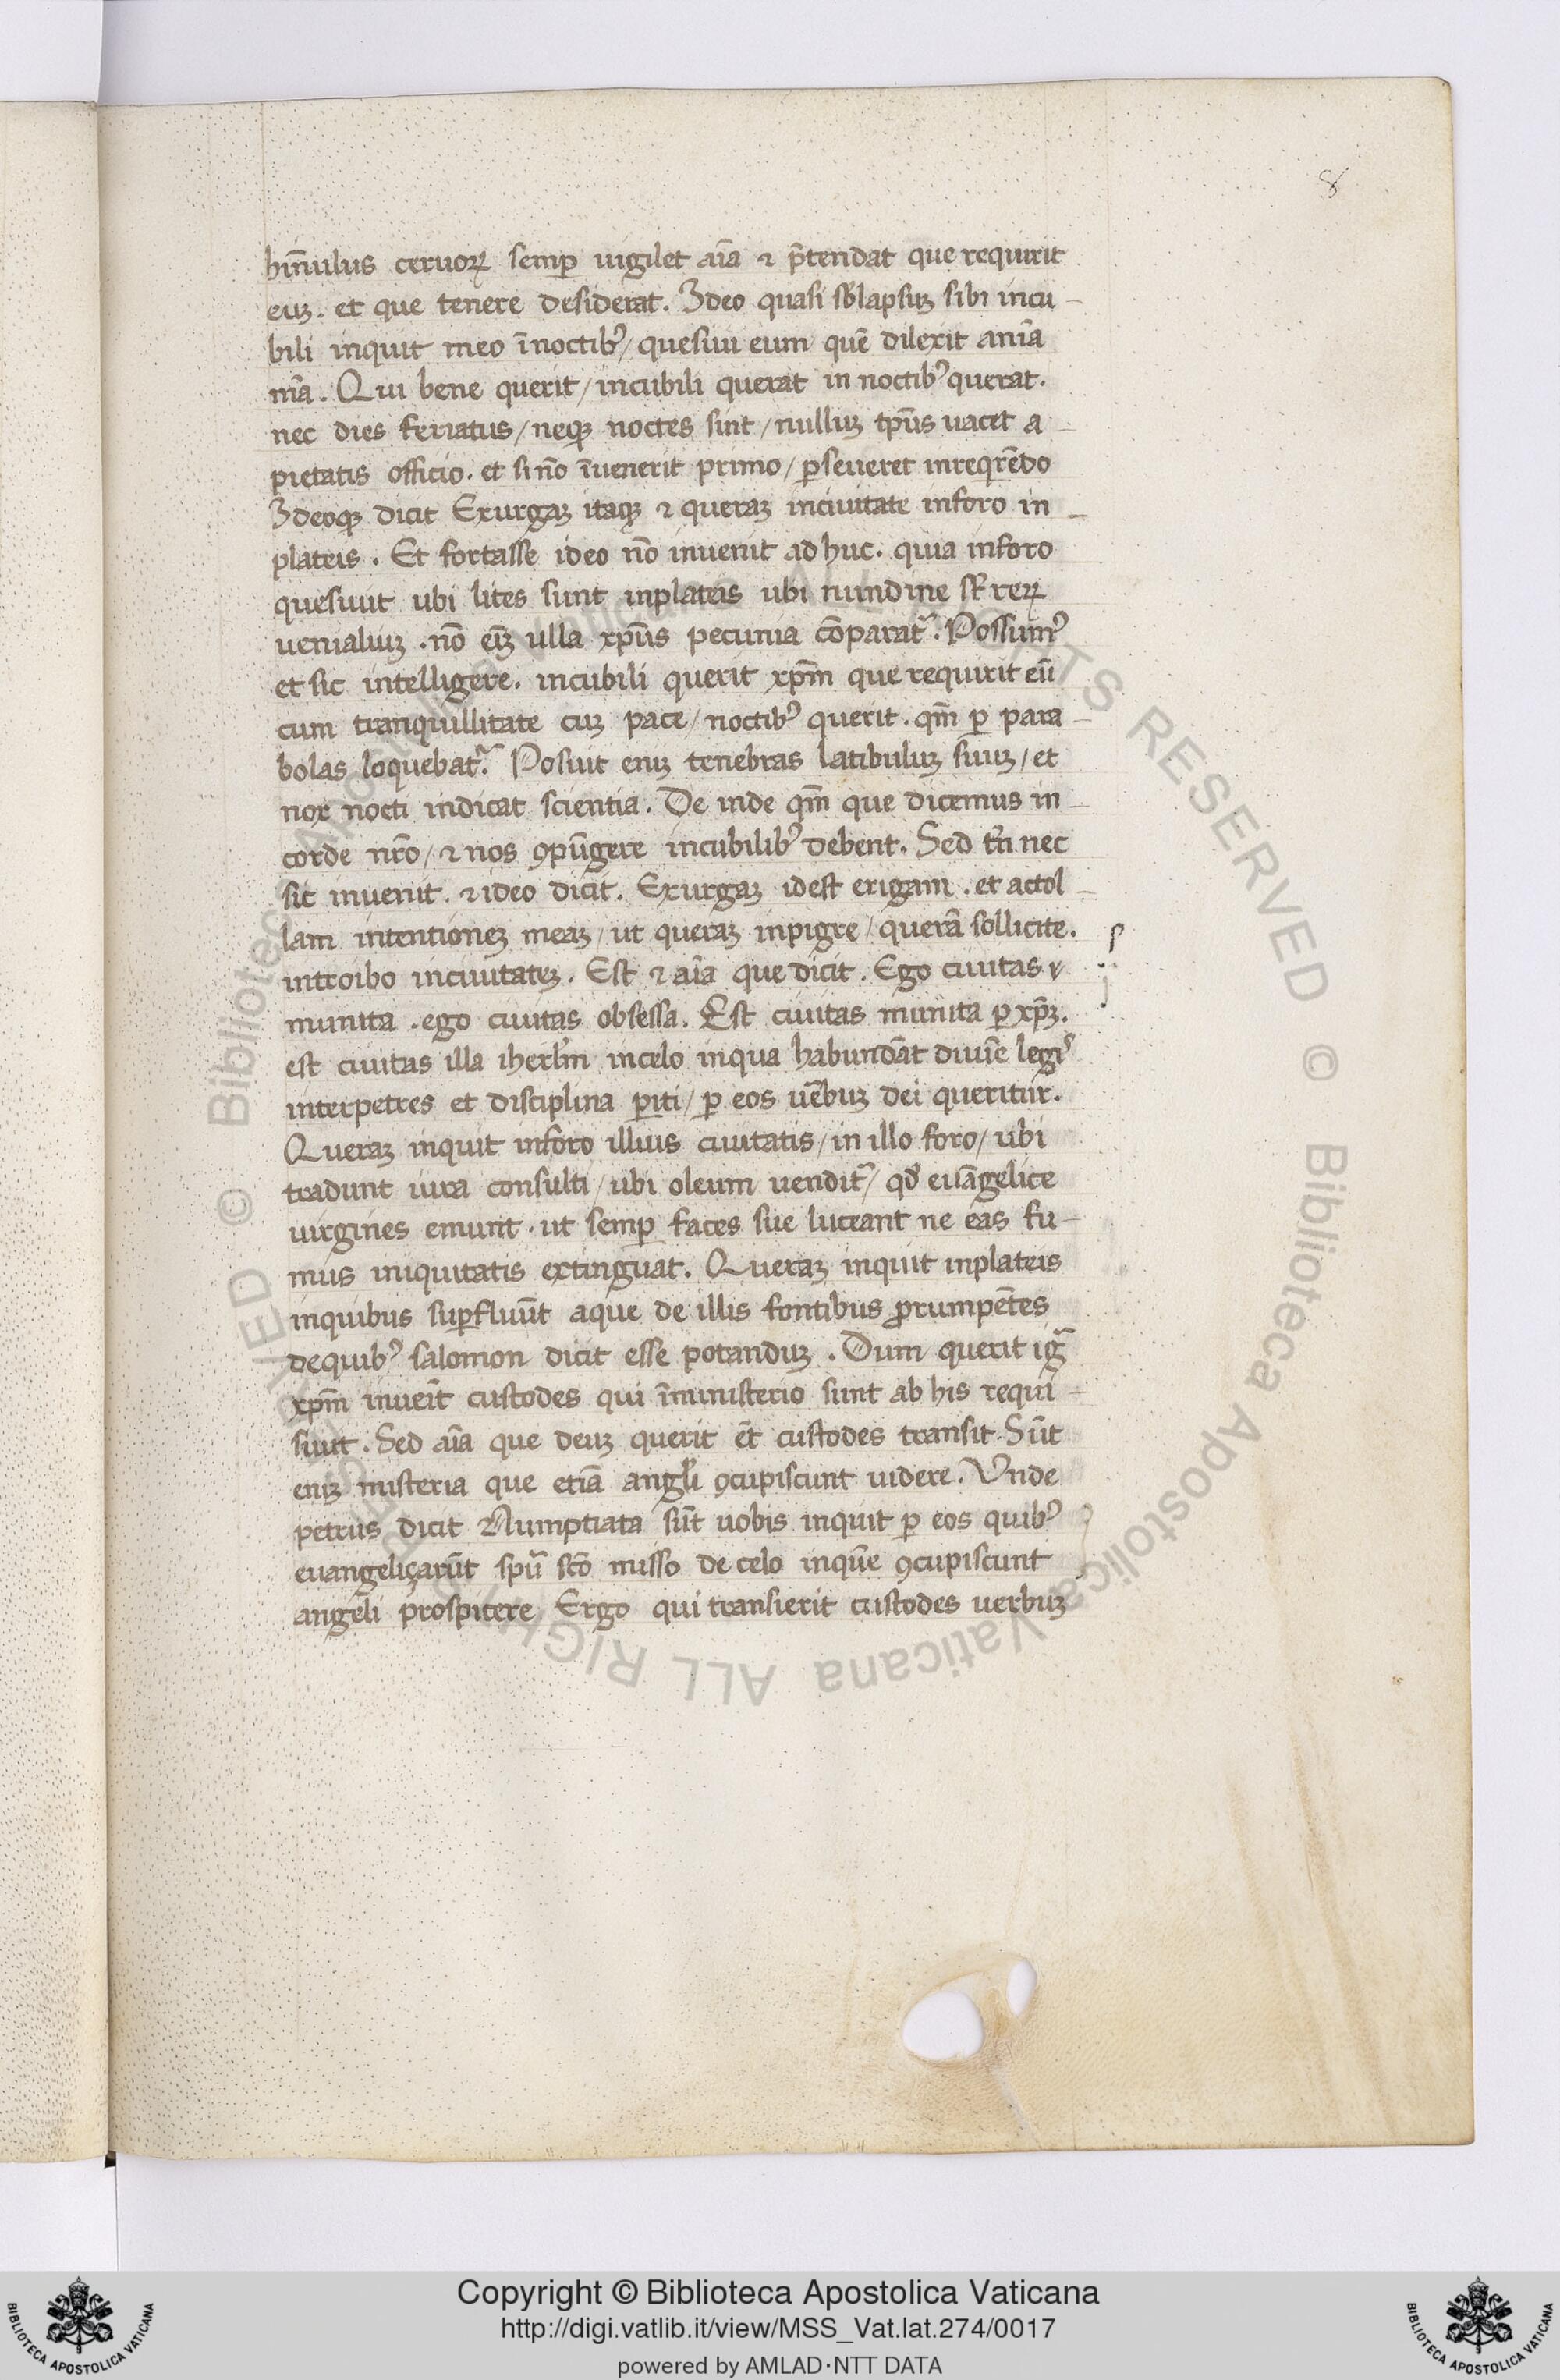 8
hīnulus ceruoꝝ semꝑ uigilet aīa ⁊ p̄tendat que requirit
euꝫ. et que tenere desiderat. Ideo quasi sb̄lapsuꝫ sibi incu-
bili inquit meo īnoctibꝰ/ quesiui eum quē dilexit anīa
mā. Qui bene querit/ incubili querat in noctibꝰ querat.
nec dies feriatus/ neqꝫ noctes sint/ nulluꝫ tp̄us uacet a
pietatis officio. et si nō īuenerit primo/ ꝑseueret inreqrēdo
Ideoqꝫ dicit Exurgaꝫ itaqꝫ ⁊ queraꝫ inciuitate inforo in-
plateis. Et fortasse ideo nō inuenit ad huc. quia inforo
quesiuit ubi lites sunt inplateis ubi nundine st̄ reꝝ
uenialiuꝫ. nō eīꝫ ulla xp̄us pecunia cōparat᷑. Possumꝰ
et sic intelligere. incubili querit xp̄m que requirit eū
cum tranquillitate cuꝫ pace/ noctibꝰ querit. qm̄ ꝑ para-
bolas loquebat᷑. Posuit eniꝫ tenebras latibuluꝫ suuꝫ/ et
nox nocti indicat scientia. De inde qm̄ que dicemus in-
corde nr̄o/ ⁊ nos ꝯpūgere incubilibꝰ debent. Sed tn̄ nec
sic inuenit. ⁊ ideo dicit. Exurgaꝫ idest erigam. et actol-
lam intentioneꝫ meaꝫ/ ut queraꝫ inpigre/ querā sollicite.
introibo inciuitateꝫ. Est ⁊ aīa que dicit. Ego ciuitas
munita. ego ciuitas obsessa. Est ciuitas munita ꝑ xp̄ꝫ.
est ciuitas illa iherl̄m incelo inqua habundāt diuīe legiꝰ
interpetres et disciplina ꝑiti/ ꝑ eos uēbuꝫ dei queritur.
Queraꝫ inquit inforo illius ciuitatis/ in illo foro/ ubi
tradunt iura consulti/ ubi oleum uendit᷑/ qd̄ euāgelice
uirgines emunt. ut semꝑ faces sue luceant ne eas fu-
mus iniquitatis extinguat. Queraꝫ inquit inplateis
inquibus suꝑfluūt aque de illis fontibus ꝓrumpētes
dequibꝰ salomon dicit esse potanduꝫ. Dum querit ig᷑
xp̄m inueīt custodes qui īministerio sunt ab his requi-
siuit. Sed aīa que deuꝫ querit et̄ custodes transit. Sūt
eniꝫ misteria que etiā angl̄i ꝯcupiscunt uidere. Vnde
petrus dicit Numptiata sūt uobis inquit ꝑ eos quibꝰ
euangeliçarūt spū sc̄o misso de celo inquē ꝯcupiscunt
angēli prospicere. Ergo qui transierit custodes uerbuꝫ
Copyright © Biblioteca Apostolica Vaticana
http://digi.vatlib.it/view/MSS_Vat.lat.274/0017
powered by AMLAD·NTT DATA
BIBLIOTECA APOSTOLICA VATICANA
BIBLIOTECA APOSTOLICA VATICANA
© Biblioteca Apostolica Vaticana ALL RIGHTS RESERVED © Biblioteca Apostolica Vaticana ALL RIGHTS RESERVED